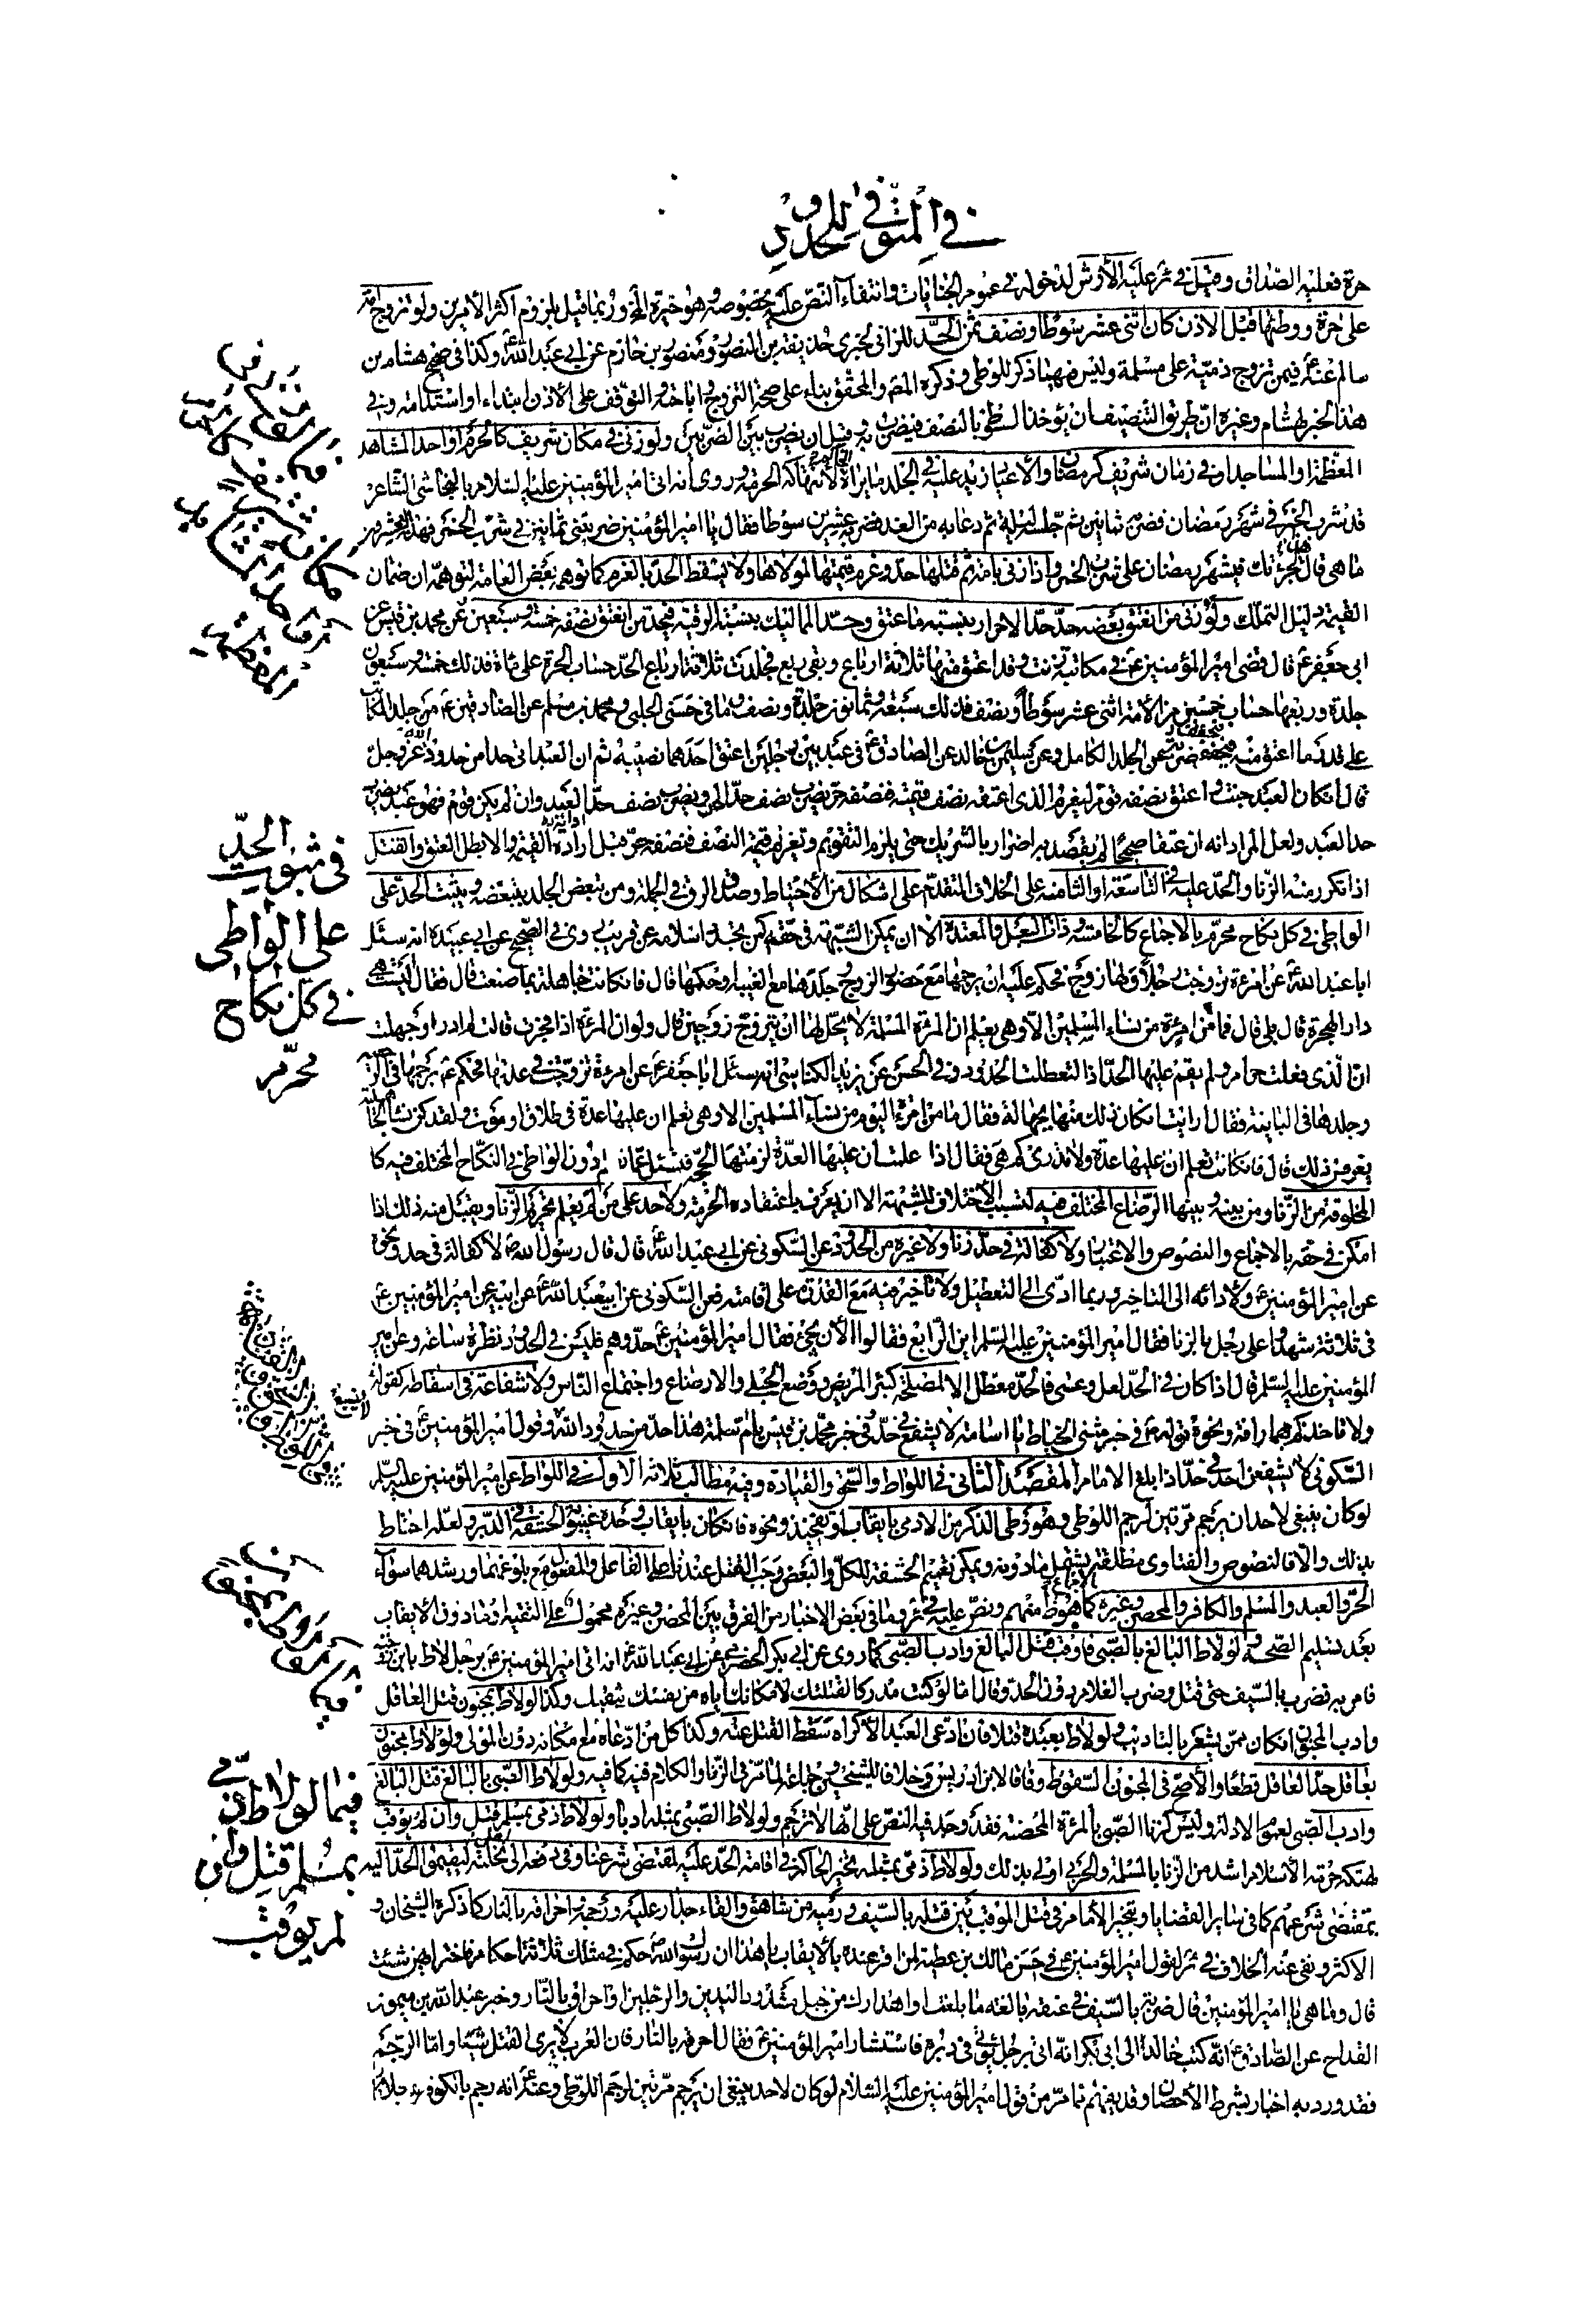 في المتوفي للحدود
حرة فعليه الصداق وقيل في ثر عليه الأرش لدخوله في عموم الجنايات وانتفاء النص عليه بخصوصه وهو خيرة الخ وربما قيل بلزوم اكثر الأمرين ولو تزوج امة
على حرة ووطئها قبل الاذن كان اثنى عشر سوطا ونصف ثمن الحد للزاني لخبري حذيفة بن المنصور ومنصور بن حازم عن ابي عبد الله ع وكذا في صحيح هشام بن
سالم عنه ع فيمن تزوج ذمية على مسلمة وليس فيهما ذكر للوطي وذكره المص والمحقق بناء على صحة التزوج واباحة التوقف على الأذن ابتداء او استدامة وفي
هذا الخبر لهشام وغيره ان طريق التنصيف ان يؤخذ السوط بالنصف فيضرب به وقيل ان يضرب بين الضربين ولو زنى في مكان شريف كالحرم او احد المشاهد
المعظمة او المساجد او في زمان شريف كرمضان والأعياد زيد عليه في الجلد ما يراه الحاكم لانتهاكه الحرمة وروى انه اتى امير المؤمنين عليه السلام بالنجاشى الشاعر
قد شرب الخمر في شهر رمضان فضربه ثمانين ثم حبسه ليلة ثم دعا به من الغد فضربه عشرين سوطا فقال يا امير المؤمنين ضربتني ثمانين في شرب الخمر فهذه العشرين
ما هي قال لتجرئك في شهر رمضان على شرب الخمر واذا زنى بامة ثم قتلها حد وغرم قيمتها لمولاها ولا يسقط الحد بالغرم كما توهمه بعض العامة لتوهمه ان ضمان
القيمة دليل التملك ولو زنى من انعتق بعضه حد حد الاحرار بنسبة ما عتق وحد المماليك بنسبة الرقية فيحد من انعتق نصفه خمسة وسبعين عن محمد بن قيس عن
ابي جعفر ع قال قضى امير المؤمنين ع في مكاتبة زنت وقد اعتق منها ثلاثة ارباع وبقى ربع فجلدت ثلاثة ارباع الحد حساب الحرة على مائة فذلك خمسة وسبعون
جلدة وربعها حساب خمسين من الأمة اثنى عشر سوطا ونصف فذلك سبعة وثمانون جلدة ونصف وما في حسنى الحلبي ومحمد بن مسلم عن الصادقين ع من جلد المكاتب
على قدر ما اعتق منه فيخفف ضربه عن الجلد الكامل وعن سليمن بن خالد عن الصادق ع في عبد بين رجلين اعتق احدهما نصيبه ثم ان العبد اتى حدا من حدود الله عز وجل
قال ان كان العبد حيث اعتق نصفه قوم ليغرم الذى اعتقه نصف قيمته فنصفه حر يضرب نصف حد الحر ويضرب نصف حد العبد وان لم يكن قوم فهو عبد يضرب
حد العبد ولعل المراد انه ان عتقا صحيحا لم يقصد به اضرار بالشريك حتى يلزم التقويم وتغريم قيمة النصف فنصفه حر قبل ارادة القيمة والا بطل العتق والقتل
اذا تكرر منه الزنا والحد عليه في التاسعة او الثامنة على الخلاف المتقدم على اشكال من الأحتياط وصدق الرق في الجملة ومن تبعض الجلد بتبعضه ويثبت الحد على
الواطئ في كل نكاح محرم بالاجماع كالخامسة وذات البعل والمعتدة الا ان يمكن الشبهة في حقه كمن تجدد اسلامه عن قريب وفي الصحيح عن ابي عبيدة انه سئل
ابا عبد الله ع عن امرءة تزوجت رجلا ولها زوج فحكم عليه ان يرجمها مع حضور الزوج وجلدها مع الغيبة وحكمها قال فان كانت جاهلة بما صنعت قال فقال اليس هي
دار الهجرة قال بلى قال فما من امرءة من نساء المسلمين الا وهي تعلم ان المرئة المسلمة لا يحل لها ان تتزوج زوجين قال ولو ان المرئة اذا فجرت قالت لم ادر او جهلت
ان الذى فعلت حرام ولم يقم عليها الحد اذا لتعطلت الحدود وفي الحسن عن يزيد الكناسي انه سئل ابا جعفر ع عن امرءة تزوجت في عدتها فحكم ع برجمها في الرجعية
وجلدها في البائنة فقال ارايت ان كان ذلك منها بجهالة فقال ما من امرءة اليوم من نساء المسلمين الا وهي تعلم ان عليها عدة في طلاق او موت ولقد كن نساء الجاهلية
يعرفن ذلك قال فان كانت تعلم ان عليها عدة ولا تدرى كم هي فقال اذا علمت ان عليها العدة لزمتها الحجة فتسئل حتى تعلم دون الواطئ في النكاح المختلف فيه كا
المخلوقة من الزنا ومن بينه وبينها الرضاع المختلف فيه لتسبب الأختلاف للشبهة الا ان يعرف باعتقاده الحرمة ولا حد على من لم يعلم تحريم الزنا ويقبل منه ذلك اذا
امكن في حقه بالاجماع والنصوص والاعتبار ولا كفالة في حد زنا ولا غيره من الحدود عن السكوني عن ابي عبد الله ع قال قال رسول الله ص لا كفالة في حد ونحوه
عن امير المؤمنين ع ولأدائه الى التاخير وربما ادى الى التعطيل ولا تاخير فيه مع القدرة على اقامته فعن السكوني عن ابي عبد الله ع عن ابيه عن امير المؤمنين ع
في ثلاثة شهدوا على رجل بالزنا فقال امير المؤمنين عليه السلم اين الرابع فقالوا الأن يجئ فقال امير المؤمنين ع حدوهم فليس في الحدود نظرة ساعة وعن امير
المؤمنين عليه السلم قال اذا كان في الحد لعل وعسى فالحد معطل الا لمصلحة كبرء المريض ووضع الحبلى والارضاع واجتماع الناس ولا شفاعة في اسقاطه كقوله
ولا تاخذكم بهما رافة ونحوه قوله ص في خبر مثنى الحناط يا اسامة لا يشفع في حد وفي خبر محمد بن قيس يا ام سلمة هذا حد من حدود الله وقول امير المؤمنين ع في خبر
السكوني لا يشفعن احد في حد اذا بلغ الامام المقصد الثاني في اللواط والسحق والقيادة وفيه مطالب ثلاثة الأول في اللواط عن امير المؤمنين عليه السلم
لو كان ينبغي لاحد ان يرجم مرتين لرجم اللوطي وهو وطى الذكر من الادمى بايقاب او تفخيذ ونحوه فان كان بايقاب وحده غيبوبة الحشفة في الدبر ولعله احتاط
بذلك والا فالنصوص والفتاوى مطلقة يشمل ما دونه ويمكن تعميم الحشفة للكل والبعض وجب القتل عندنا على الفاعل والمفعول مع بلوغهما ورشدهما سواء
الحر والعبد والمسلم والكافر والمحصن وغيره كما هو ظ الاجماع منهم ونص عليه في ئر وما في بعض الاخبار من الفرق بين المحصن وغيره محمول على التقية او ما دون الأيقاب
بعد تسليم الصحة ولو لاط البالغ بالصبي فاوقب قتل البالغ وادب الصبي كما روى عن ابي بكر الحضرمي عن ابي عبد الله ع انه اتى امير المؤمنين ع برجل لاط بابن زوجته
فامر به فضرب بالسيف حتى قتل وضرب الغلام دون الحد وقال اما لو كنت مدركا لقتلتك لامكانك اياه من نفسك بثقبك وكذا لو لاط بمجنون قتل العاقل
وادب المجنون ان كان ممن يشعر بالتاديب ولو لاط بعبده قتلا فان ادعى العبد الأكراه سقط القتل عنه وكذا كل من ادعاه مع مكانه دون المولى ولو لاط مجنون
بعاقل حد العاقل قطعا والأصح في المجنون السقوط وفاقا لابن ادريس وخلافا للشيخين وجماعة لما مر في الزنا والكلام فيه كما فيه ولو لاط الصبي بالبالغ قتل البالغ
وادب الصبي لعموم الادلة وليس كزنا الصبي بالمرئة المحصنة فقد وجد فيه النص على انها لا ترجم ولو لاط الصبي بمثله ادبا ولو لاط ذمى بمسلم قتل وان لم يوقب
لهتكه حرمة الأسلام اشد من الزنا بالمسلمة والحربي اولى بذلك ولو لاط ذمى بمثله تخير الحاكم في اقامة الحد عليه بمقتضى شرعنا وفي دفعه الى اهل نحلته ليقيموا الحد اليه
بمقتضى شرعهم كما في ساير القضايا ويتخير الأمام في قتل الموقب بين قتله بالسيف ورميه من شاهق والقاء جدار عليه ورجمه واحراقه بالنار كما ذكره الشيخان و
الاكثر ونفى عنه الخلاف في ئر لقول امير المؤمنين ع في حسن مالك بن عطية لمن اقر عنده بالأيقاب يا هذا ان رسول الله ص حكم في مثلك ثلاثة احكام فاختر ايهن شئت
قال وما هي يا امير المؤمنين قال ضربة بالسيف في عنقه بالغة ما بلغت او اهدارك من جبل مشدود اليدين والرجلين او احراق بالنار وخبر عبد الله بن ميمون
القداح عن الصادق ع انه كتب خالد الى ابي بكر انه اتى برجل يؤتى في دبره فاستشار امير المؤمنين ع فقال احرقه بالنار فان العرب لا يرى القتل شيئا واما الرجم
فقد ورد به اخبار بشرط الأحصان وقد يفهم مما مر من قول امير المؤمنين عليه السلام لو كان لاحد ينبغي ان يرجم مرتين لرجم اللوطي وعنه ع انه رجم بالكوفة رجلا
في ثبوت الحد
على الواطي
في كل نكاح
محرم
فيما لو لاط ذمي
بمسلم قتل وان
لم يوقب